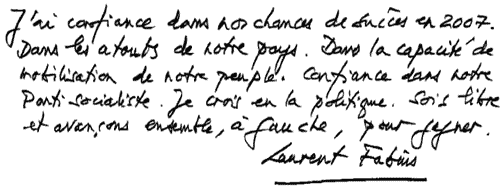 J'ai confiance dans nos chances de succès en 2007.
Dans les atouts de notre pays. Dans la capacité de
mobilisation de notre peuple. Confiance dans notre
Parti socialiste. Je crois en la politique. Sois libre
et avançons ensemble, à gauche, pour gagner.
Laurent Fabius